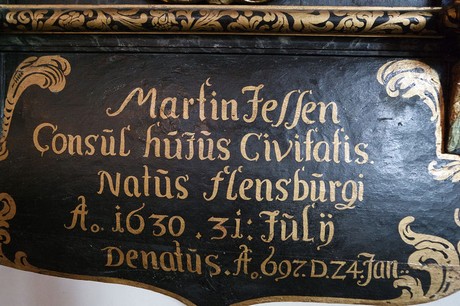 Martin Jessen
Consūl hūjūs Civitatis.
Natūs flensbūrgi
Ao. 1630. 31: Jūlÿ
Denatūs. Ao 697. D. 24. Jan